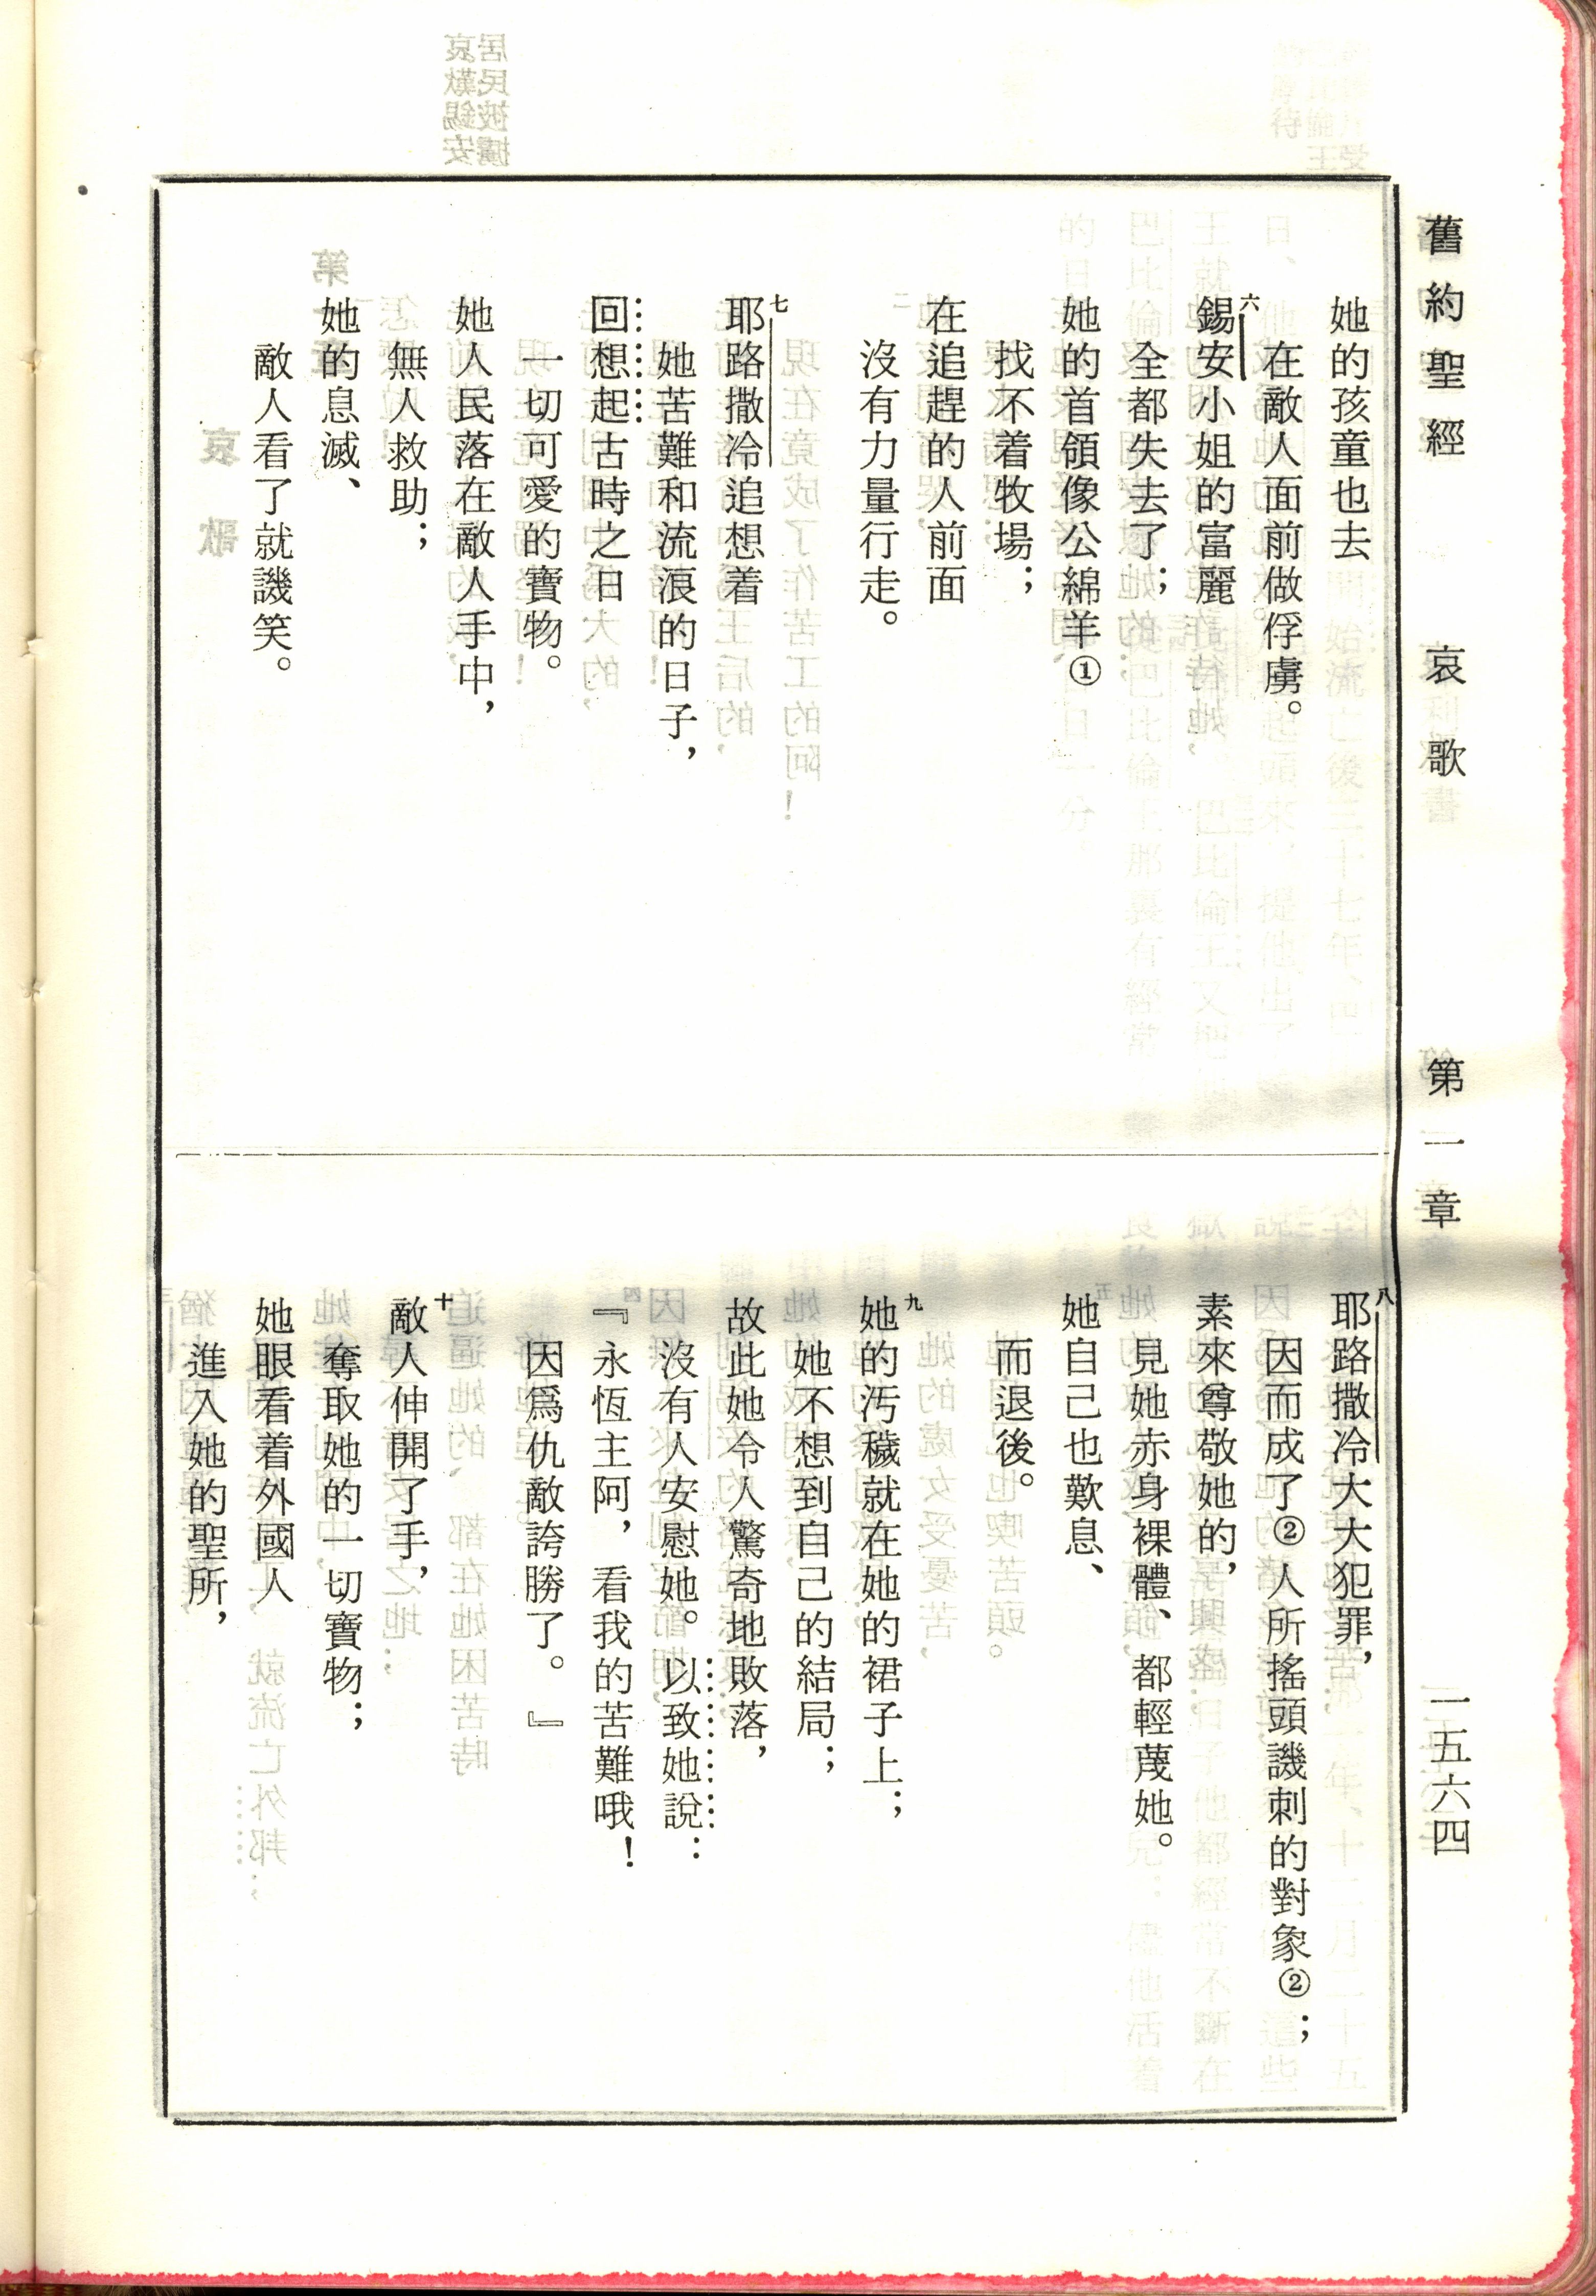 舊約聖經 哀歌 第一章 一五六四
她的孩童也去
在敵人面前做俘虜。
六錫安小姐的富麗
全都失去了；
她的首領像公綿羊①
找不着牧場；
在追趕的人前面
沒有力量行走。
七耶路撒冷追想着
她苦難和流浪的日子，
回想起古時之日
一切可愛的寶物。
她人民落在敵人手中，
無人救助；
她的息滅、
敵人看了就譏笑。
八耶路撒冷大大犯罪，
因而成了②人所搖頭譏刺的對象②；
素來尊敬她的，
見她赤身裸體、都輕蔑她。
她自己也歎息、
而退後。
九她的汚穢就在她的裙子上；
她不想到自己的結局；
故此她令人驚奇地敗落，
沒有人安慰她。以致她說：
『永恆主阿，看我的苦難哦！
因爲仇敵誇勝了。』
十敵人伸開了手，
奪取她的一切寶物；
她眼看着外國人
進入她的聖所，